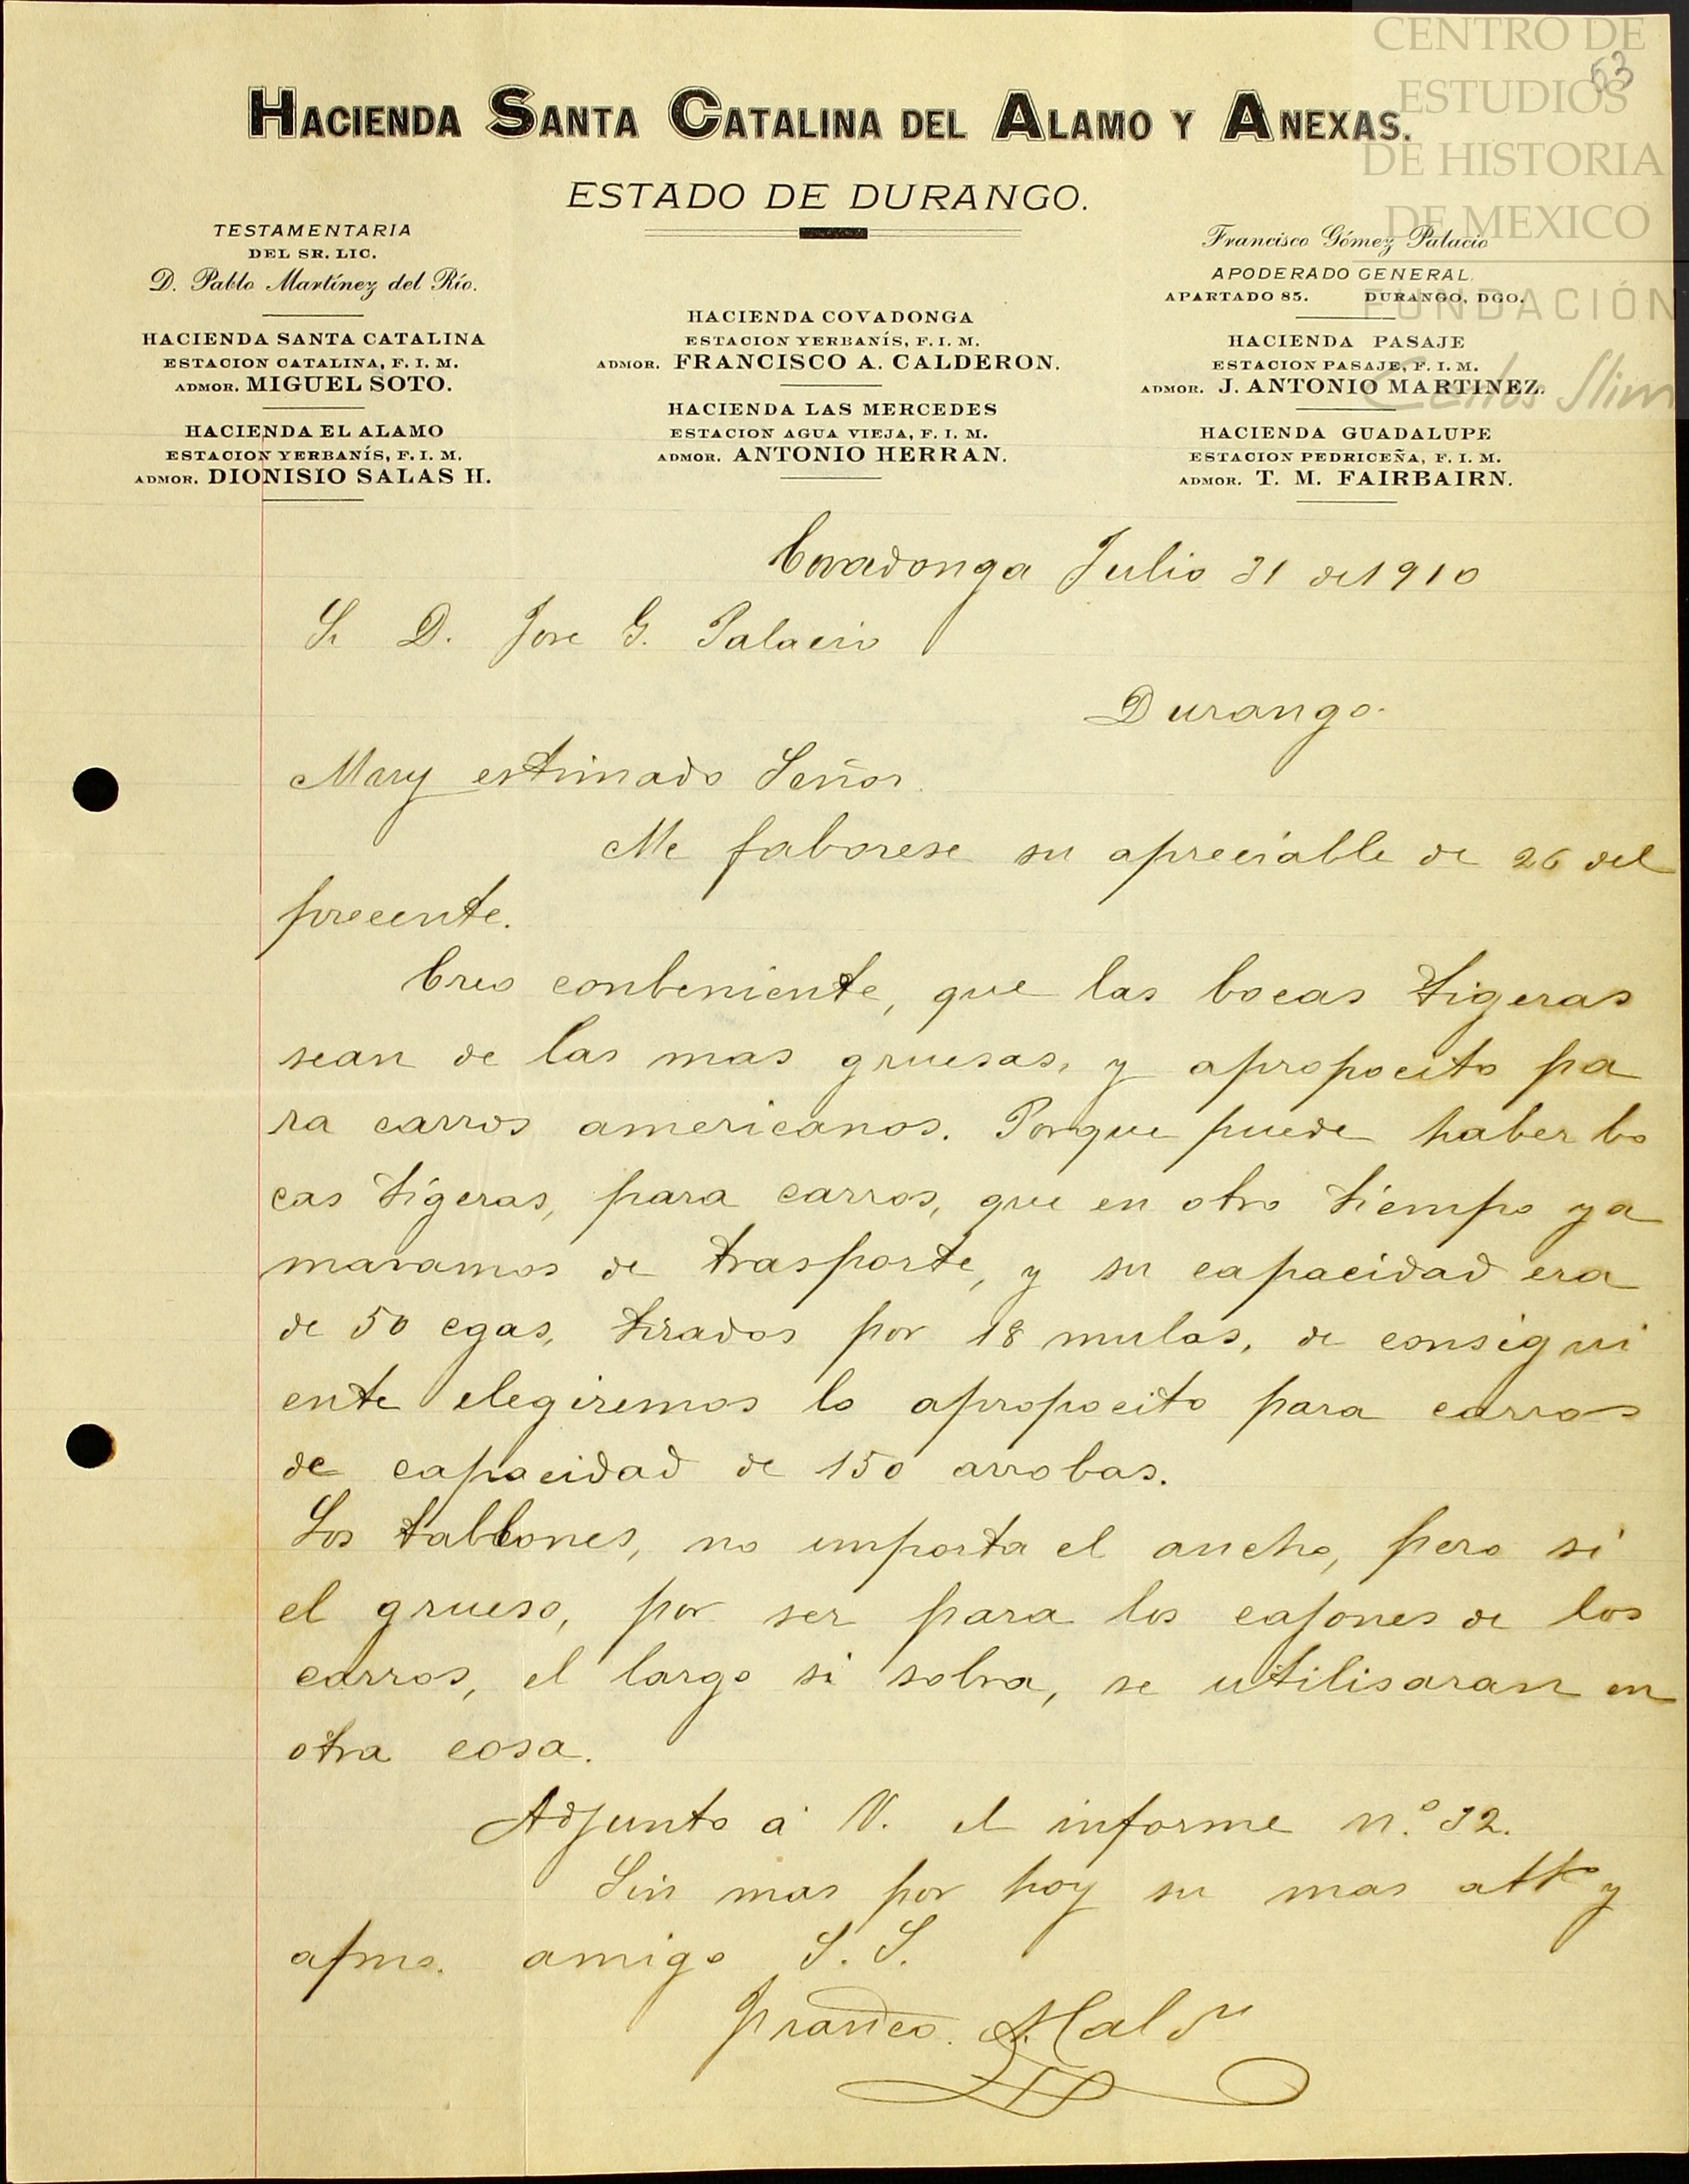 CENTRO DE
ESTUDIOS
DE HISTORIA
DE MEXICO
FUNDACIÓN
Carlos Slim
63
HACIENDA SANTA CATALINA DEL ALAMO Y ANEXAS.
ESTADO DE DURANGO.
TESTAMENTARIA
DEL SR. LIC.
D. Pablo Martínez del Río.
HACIENDA SANTA CATALINA
ESTACION CATALINA, F. I. M.
ADMOR. MIGUEL SOTO.
HACIENDA EL ALAMO
ESTACION YERBANÍS, F. I. M.
ADMOR. DIONISIO SALAS H.
HACIENDA COVADONGA
ESTACION YERBANÍS, F. I. M.
ADMOR. FRANCISCO A. CALDERON.
HACIENDA LAS MERCEDES
ESTACION AGUA VIEJA, F. I. M.
ADMOR. ANTONIO HERRAN.
Francisco Gómez Palacio
APODERADO GENERAL.
APARTADO 85. DURANGO, DGO.
HACIENDA PASAJE
ESTACION PASAJE, F. I. M.
ADMOR. J. ANTONIO MARTINEZ.
HACIENDA GUADALUPE
ESTACION PEDRICEÑA, F. I. M.
ADMOR. T. M. FAIRBAIRN.
Covadonga Julio 31 de 1910
Sr D. Jose G. Palacio
Durango.
Muy estimado Señor.
Me faborese su apreciable de 26 del
precente.
Creo conbeniente, que las bocas tigeras
sean de las mas gruesas, y apropocito pa
ra carros americanos. Porque puede haber bo
cas tigeras, para carros, que en otro tiempo ya
mavamos de trasporte, y su capacidad era
de 50 cgas, tirados por 18 mulas, de consigui
ente elegiremos lo apropocito para carros
de capacidad de 150 arrobas.
Los tablones, no importa el ancho, pero si
el grueso, por ser para los cajones de los
carros, el largo si sobra, se utilisaran en
otra cosa.
Adjunto á V. el informe n.º 32.
Sin mas por hoy su mas atto y
afmo. amigo S. S.
Francco. A. Cal